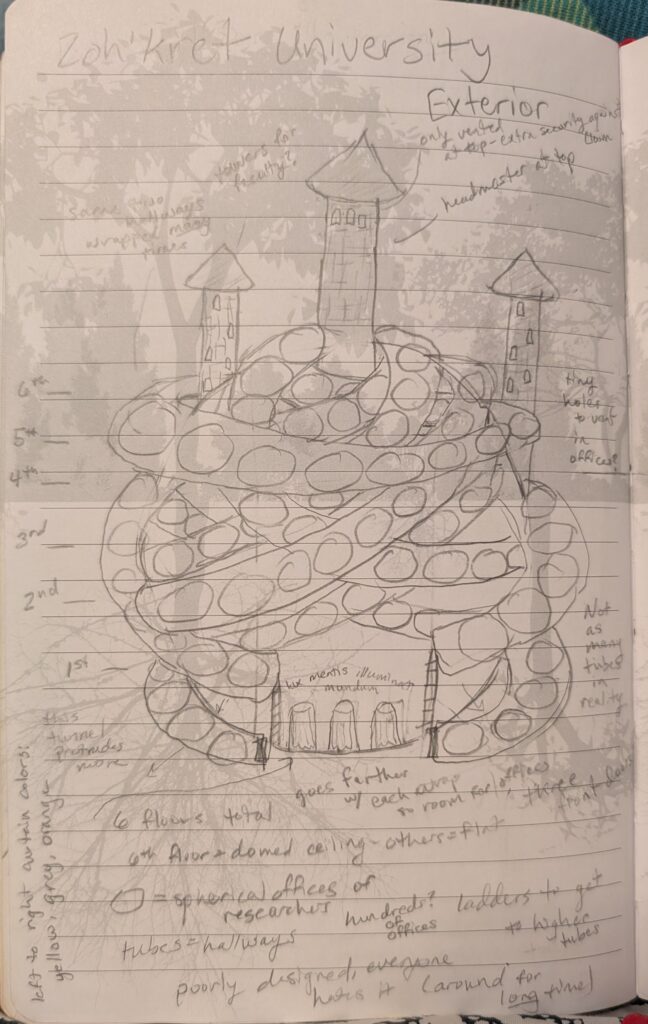 Zoh'Kret University
Exterior
only vented
at top - extra security against
towers for
faculty?
headmaster at top
Same two
hallways
wrapped many
times
6th
5th
4th
3rd
2nd
1st
tiny
holes
to vent
in
offices?
Not
as
many
tubes
in
reality
lux mentis illuminat
mundum
this
tunnel
protrudes
more
goes farther
w/ each wrap
so room for offices
three
front doors
6 floors total
6th floor = domed ceiling - others = flat
O = spherical offices of
researchers
hundreds?
of
offices
ladders to get
to higher
tubes
tubes = hallways
poorly designed, everyone
hates it (around for
long time)
left to right curtain colors:
yellow, grey, orange